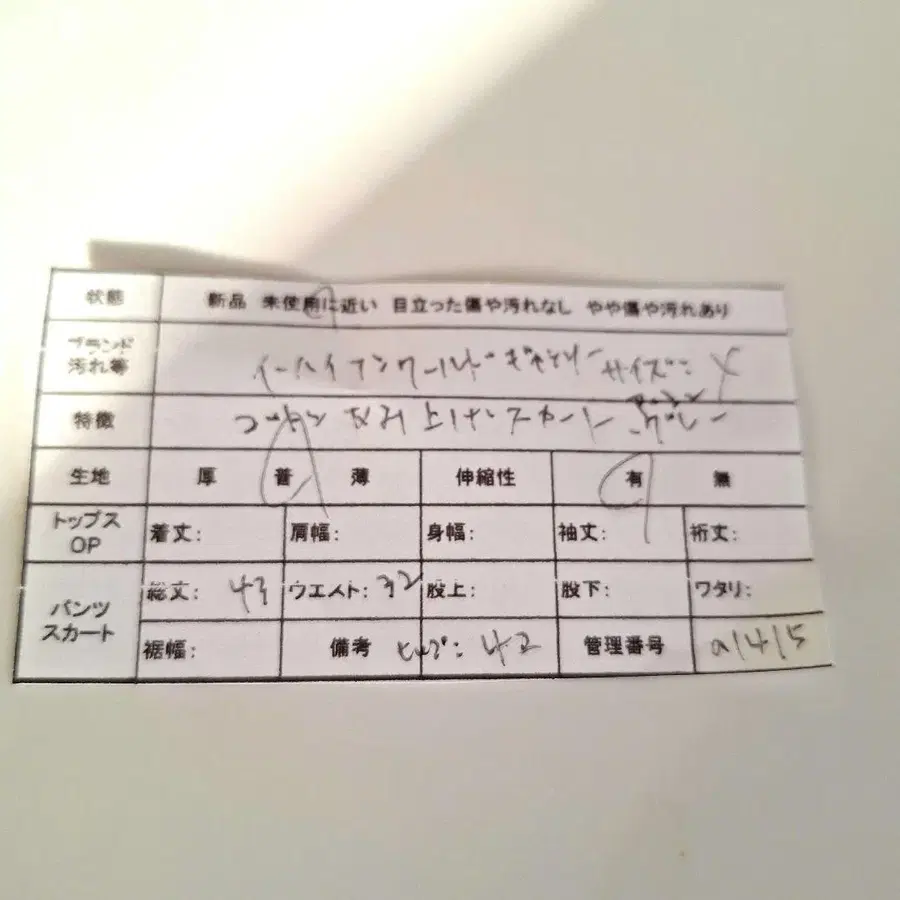 状態 新品 未使用に近い 目立った傷や汚れなし やや傷や汚れあり
ブランド 汚れ等 イーハイフンワールドギャラリー サイズ:
特徴 コットン 編み上げ スカート グレー
生地 厚 普 薄 伸縮性 有 無
トップス OP 着丈: 肩幅: 身幅: 袖丈: 裄丈:
パンツ スカート 総丈: 43 ウエスト: 32 股上: 股下: ワタリ:
裾幅: 備考 ヒップ: 42 管理番号 a1415